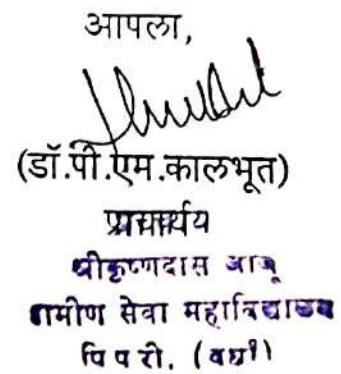 आपला,
(डॉ.पी.एम.कालभूत)
प्राचार्य
श्रीकृष्णदास जाजू
ग्रामीण सेवा महाविद्यालय
पिपरी. (वर्धा)